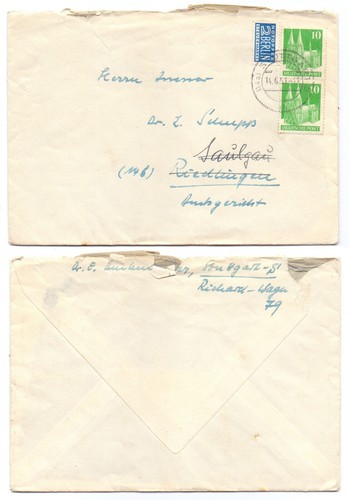 NOTOPFER
2 BERLIN
STEUERMARKE
10
DEUTSCHE POST
10
DEUTSCHE POST
Herrn
Dr. Z. Schupp
Saulgau
(14b) Riedlingen
Amtsgericht
Dr. E. Stuttgart-S
Richard-Wagn
79